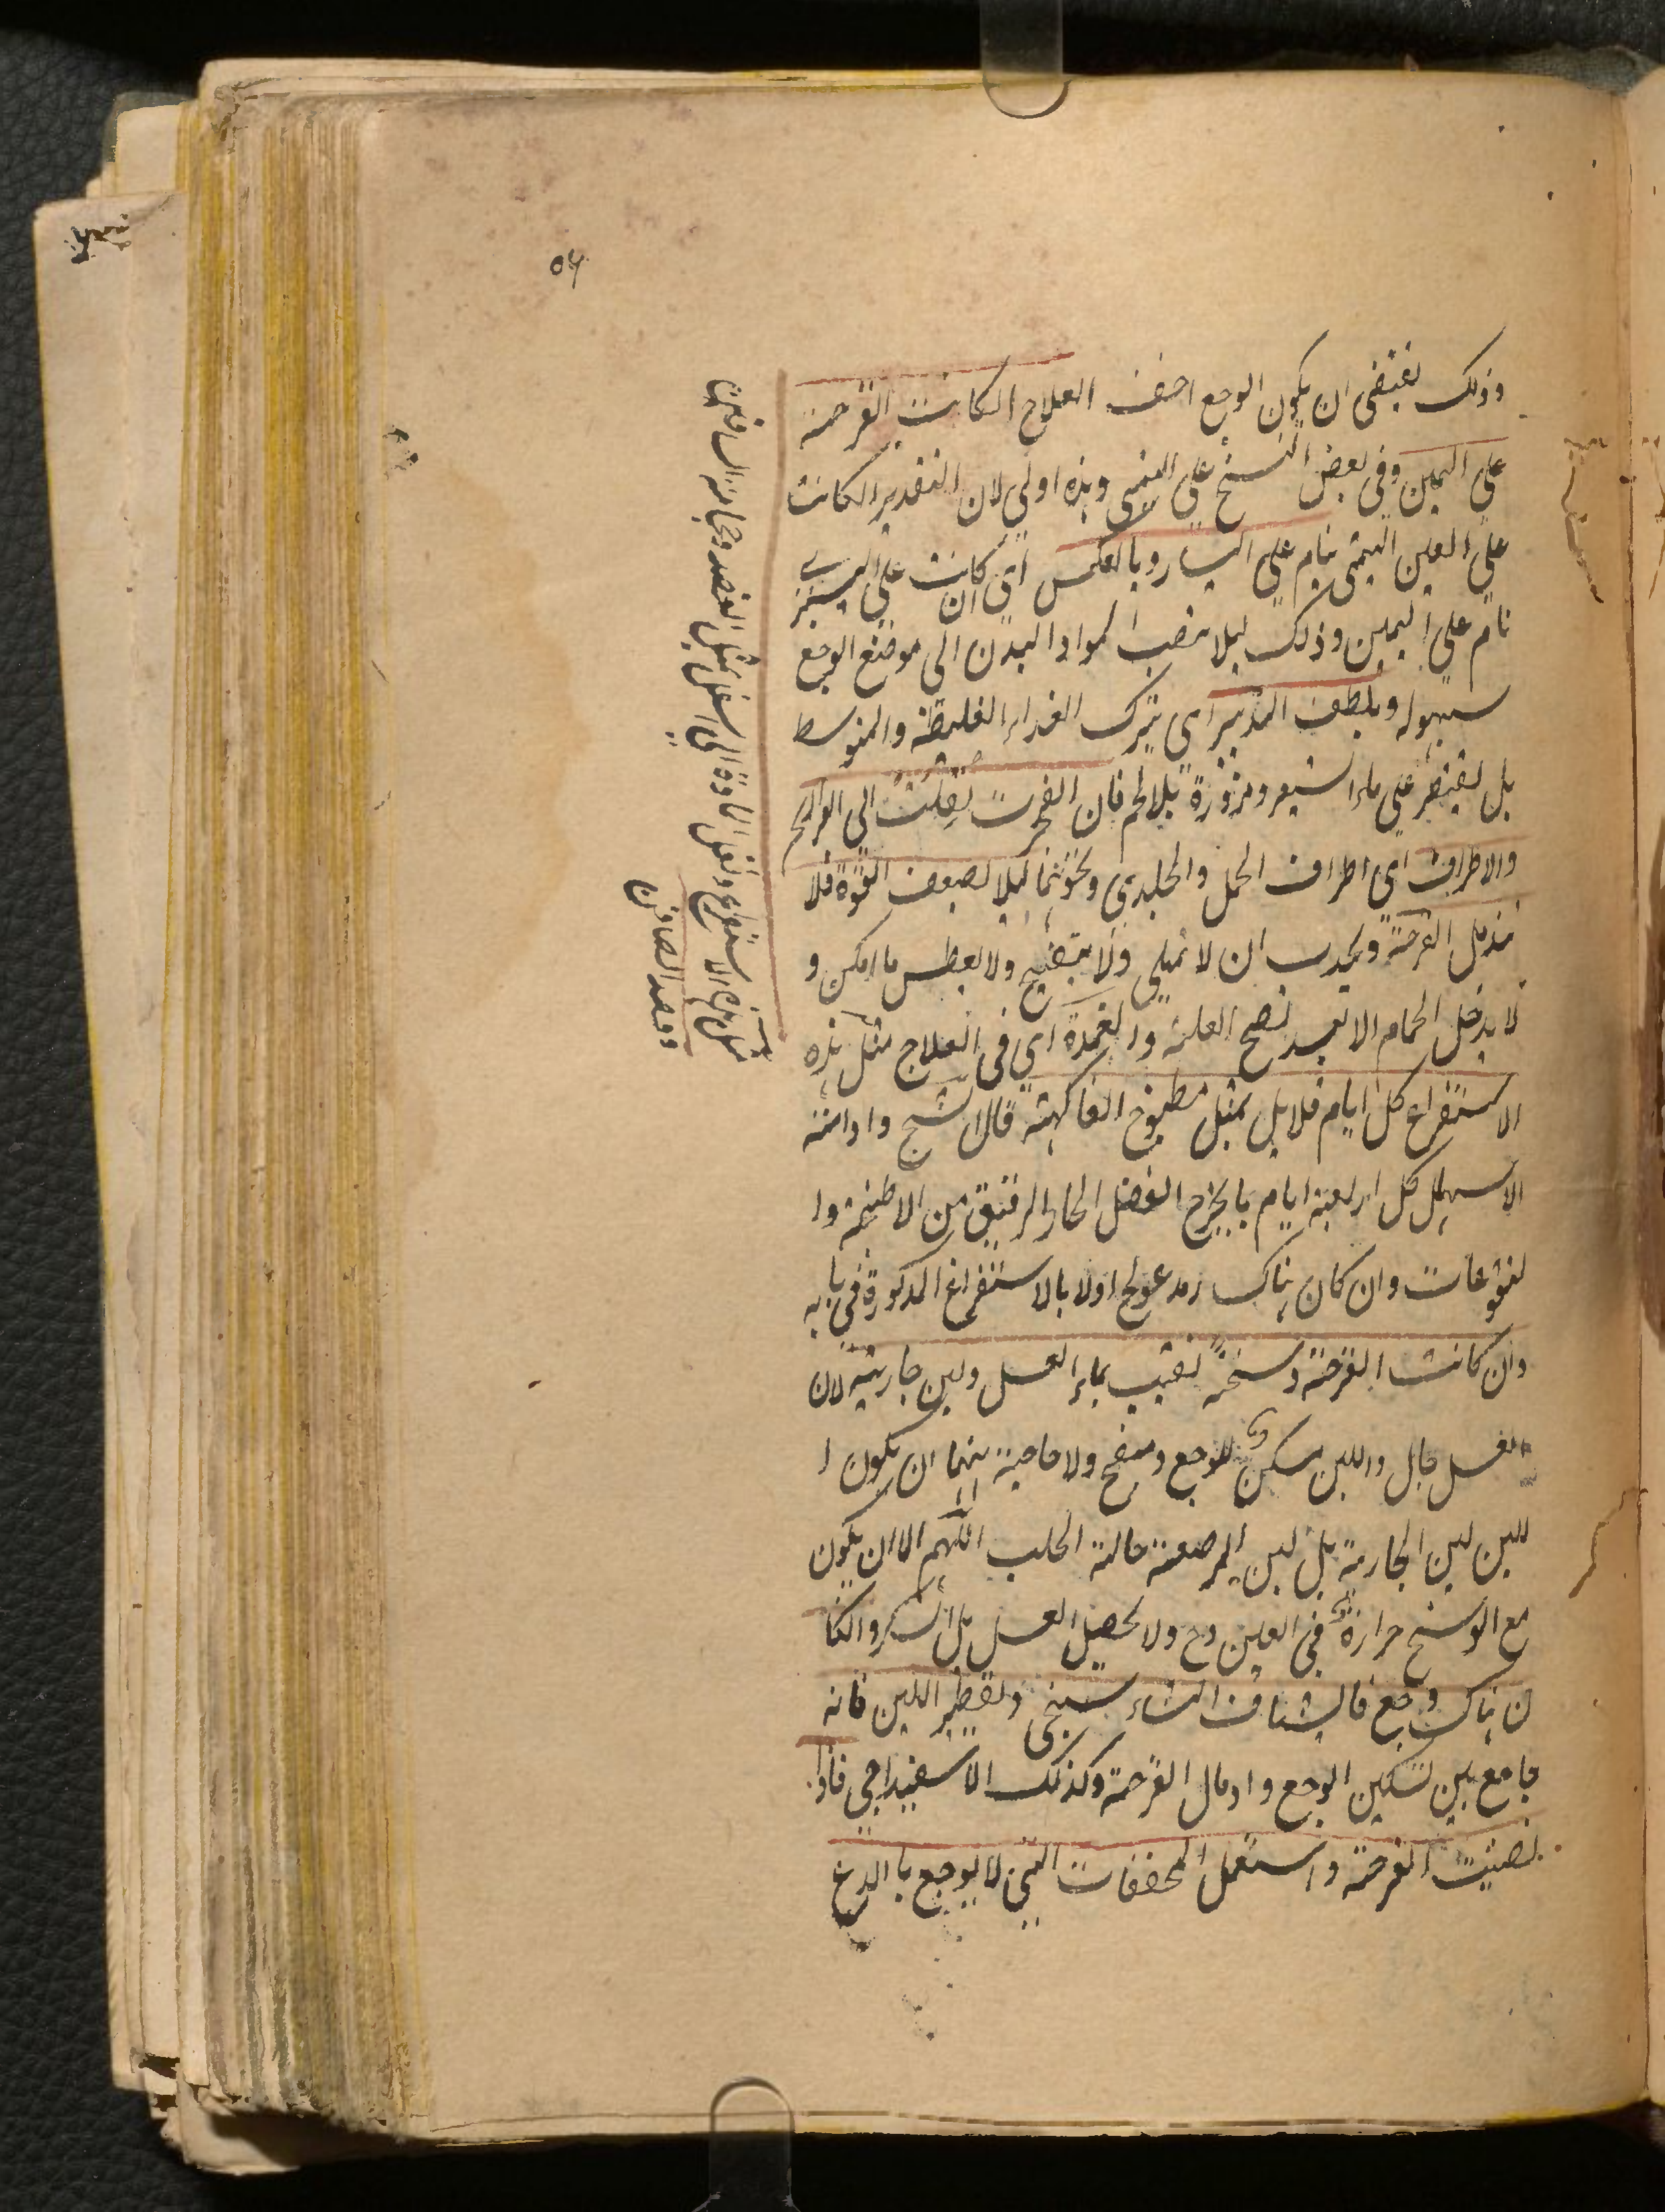 ٥٦
وذلك يقتضى ان يكون الوجع اخف العلاج ان كانت القرحة
على اليمين وفى بعض النسخ على اليمنى وهذه اولى لان التقدير ان كانت
على العين اليمنى ينام على اليسار وبالعكس اى ان كانت على اليسرى
نام على اليمين وذلك ليلا تنصب المواد البدن الى موضع الوجع
بسهولة ويلطف التدبير اى يترك الغذاء الغليظة والمتوسط
بل يقتصر على ماء الشعير ومزورة بلا لحم فان انفجرت نقلت الى الفراريج
والاطراف اى اطراف الحمل والجدى ونحوهما ليلا يضعف القوة فلا
تندمل القرحة ويجب ان لا تمتلى ولا يصيح ولا يعطس ما امكن و
لا يدخل الحمام الا بعد نضج العلة والعمدة اى فى العلاج مثل هذه
الاستفراغ كل ايام قلايل بمثل مطبوخ الفاكهة قال الشيخ وادامة
الاسهال كل اربعة ايام بما يخرج الفضل الحار الرقيق من الاطبخة وا
لنقوعات وان كان هناك رمد عولج اولا بالاستفراغ المذكورة فى بابه
وان كانت القرحة وسخة نقيت بماء العسل ولبن جارية لان
العسل جال واللبن مسكن للوجع ومنضج ولا حاجة ههنا ان يكون ا
للبن لبن الجارية بل لبن المرضعة حالة الحلب اللهم الا ان يكون
مع الوسخ حرارة فى العين وح ولا يحصل العسل بل السكر وان كا
ن هناك وجع فالشياف النشاستجى وتقطير اللبن فانه
جامع بين تسكين الوجع وادمال القرحة وكذلك الاسفيداجى فاذا
نضجت القرحة واستعمل المجففات التى لا يوجع باللدغ
الاستفراغ ونقل المادة الى اسفل مثل الفصد وحجامة الساقين
وفصد الصافن